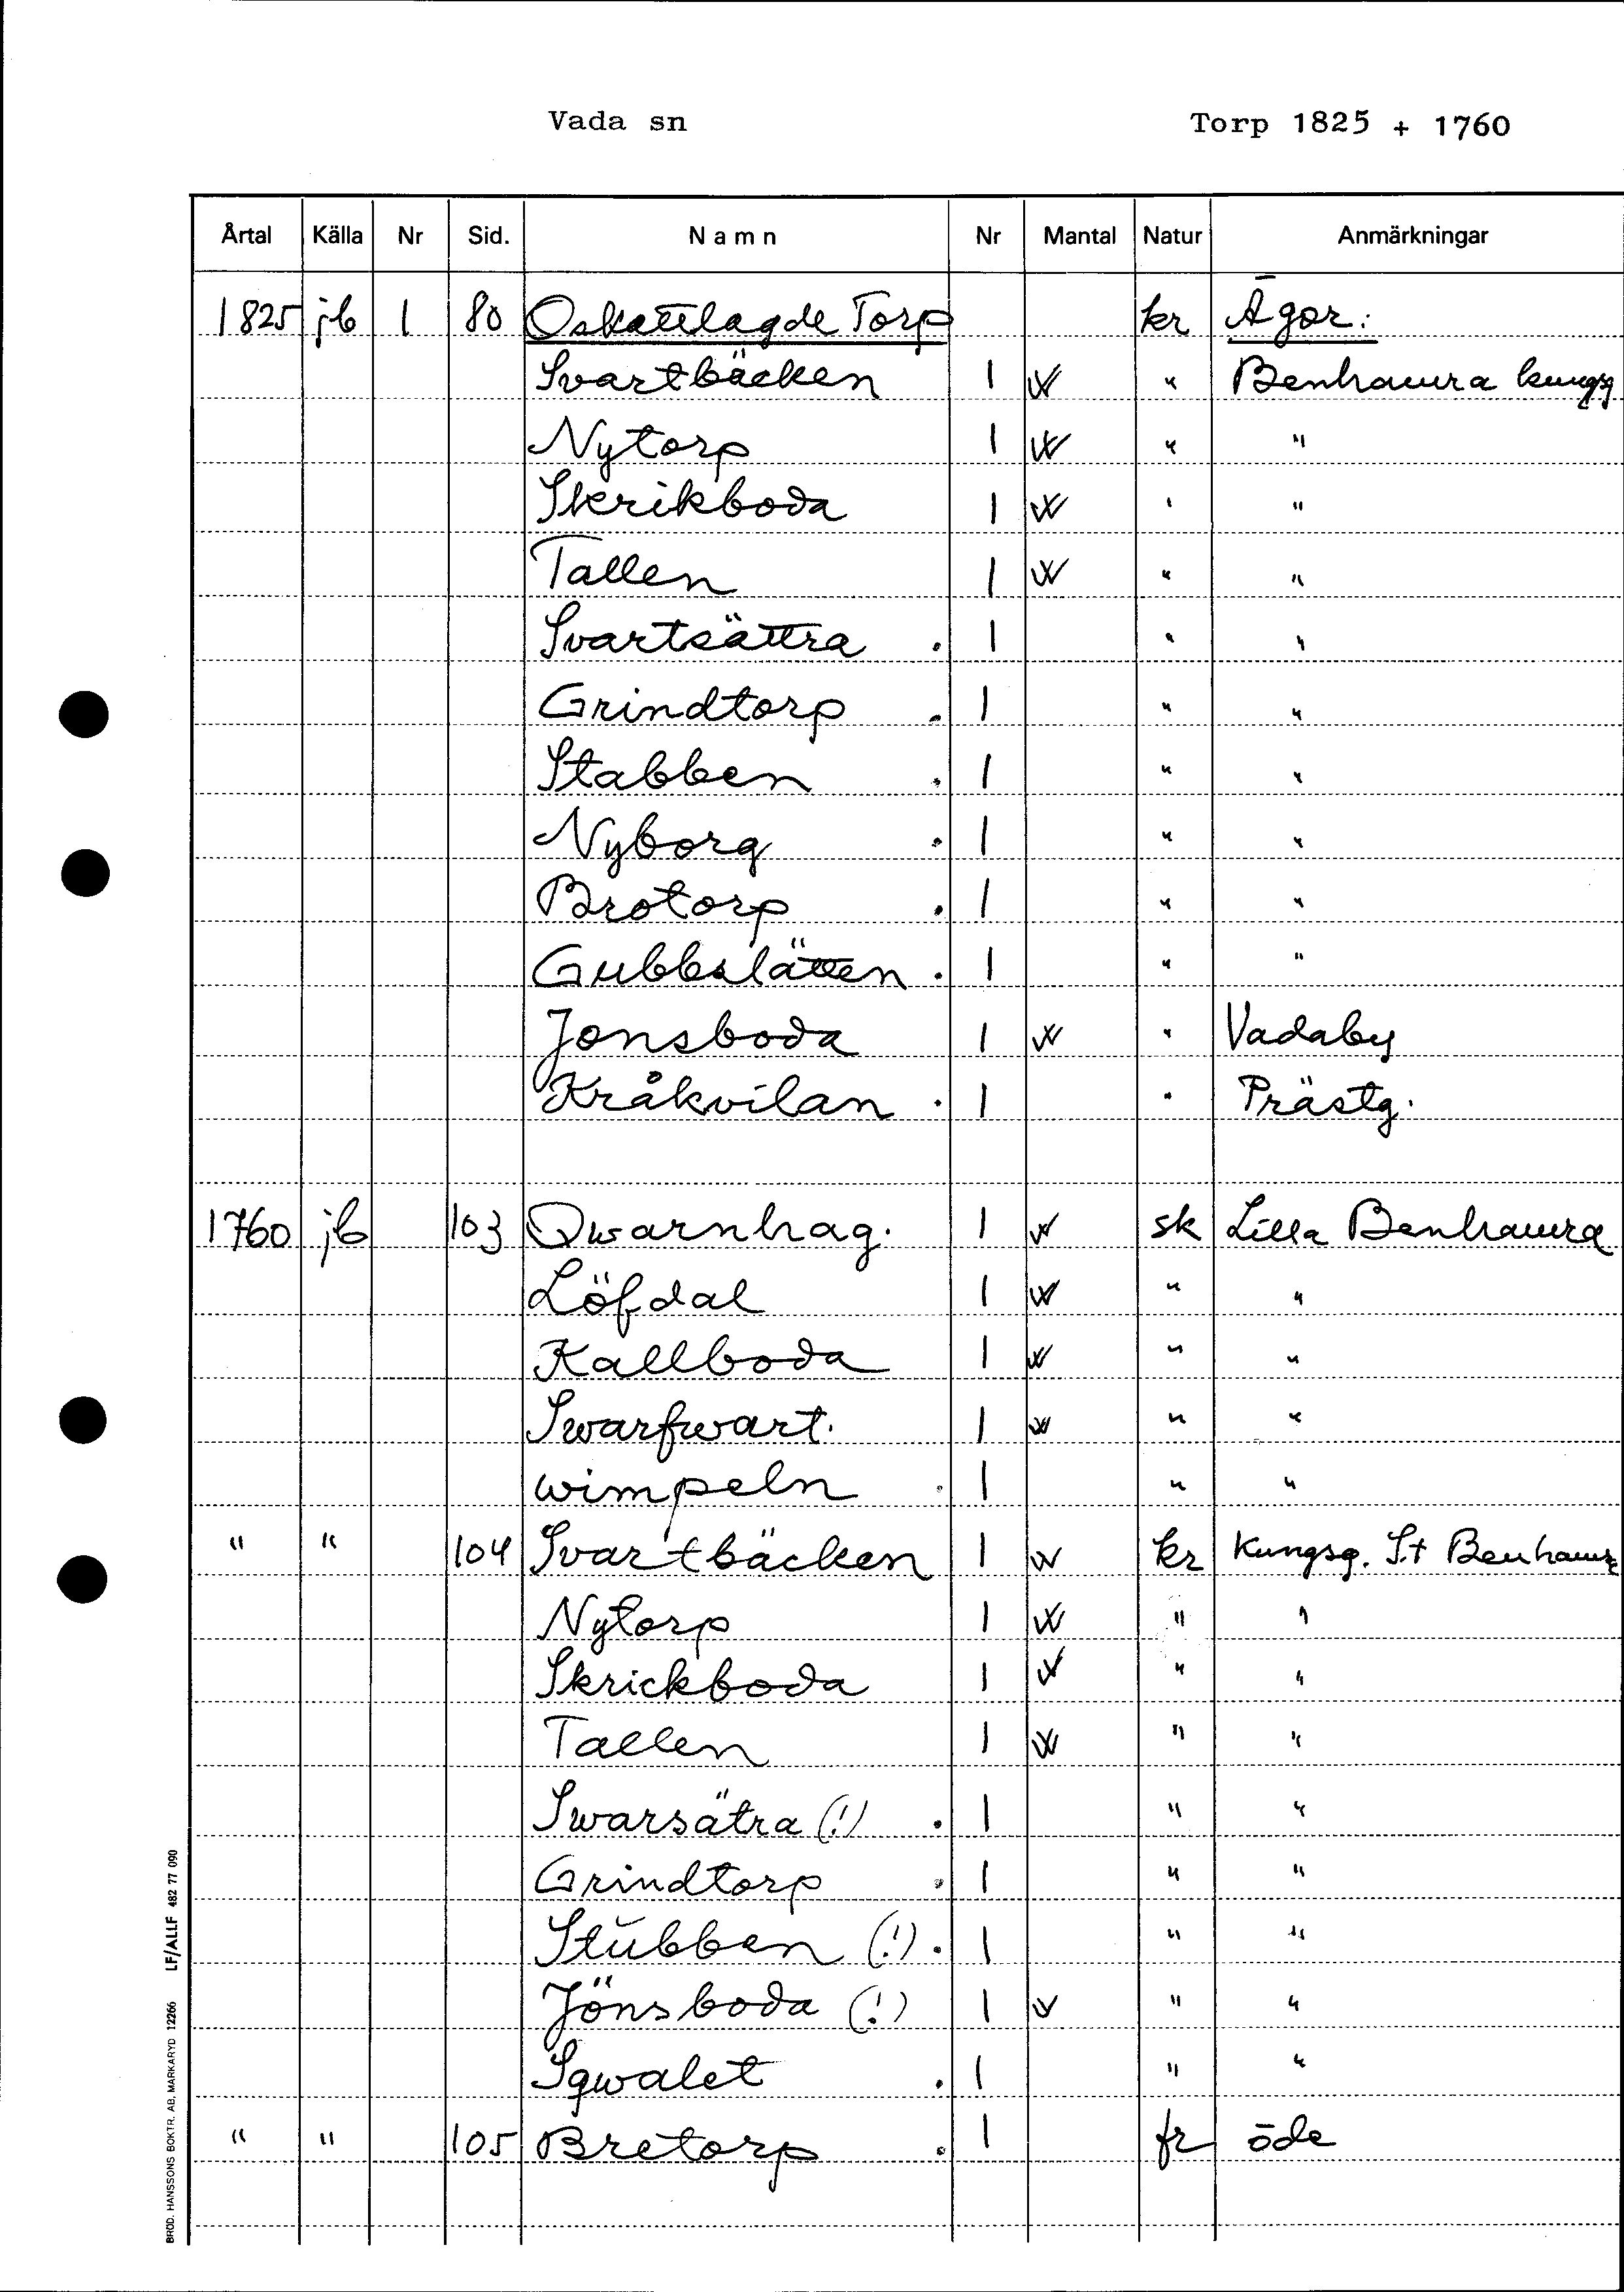 Vada sn Torp 1825 + 1760
Årtal Källa Nr Sid. Namn Nr Mantal Natur Anmärkningar
1825 jb 1 80 Oskattlagde Torp kr Ägor:
Svartbäcken 1 W " Benhamra kungsg
Nytorp 1 W " "
Skrikboda 1 W ' "
Tallen 1 W " "
Svartsättra . 1 " "
Grindtorp . 1 " "
Stabben . 1 " "
Nyborg . 1 " "
Brotorp . 1 " "
Gubbslätten . 1 " "
Jonsboda 1 W " Vadaby
Kråkvilan . 1 " Prästg.
1760 jb 103 Qwarnhag. 1 W sk Lilla Benhamra
Löfdal 1 W " "
Kallboda 1 W " "
Swarfwart. 1 W " "
wimpeln . 1 " "
" " 104 Svartbäcken 1 W kr Kungsg. St Benhamra
Nytorp 1 W " "
Skrickboda 1 W " "
Tallen 1 W " "
Swarsätra (!) . 1 " "
Grindtorp . 1 " "
Stŭbben (!) . 1 " "
Jönsboda (!) 1 W " "
Sqwalet . 1 " "
" " 105 Bretorp . 1 fr öde
BROD. HANSSONS BOKTR. AB, MARKARYD 12266 LF/ALLF 482 77 090